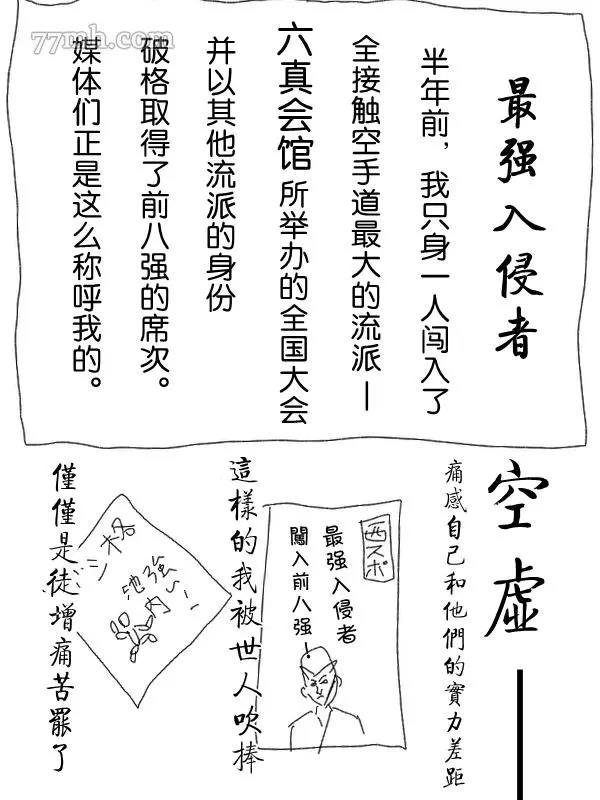 77mh.com
最强入侵者
半年前，我只身一人闯入了
全接触空手道最大的流派—
六真会馆所举办的全国大会
并以其他流派的身份
破格取得了前八强的席次。
媒体们正是这么称呼我的。
空虛—
痛感自己和他們的實力差距
西スポ
最强入侵者
闖入前八强
這樣的我被世人吹捧
格
強
池内
僅僅是徒增痛苦罷了